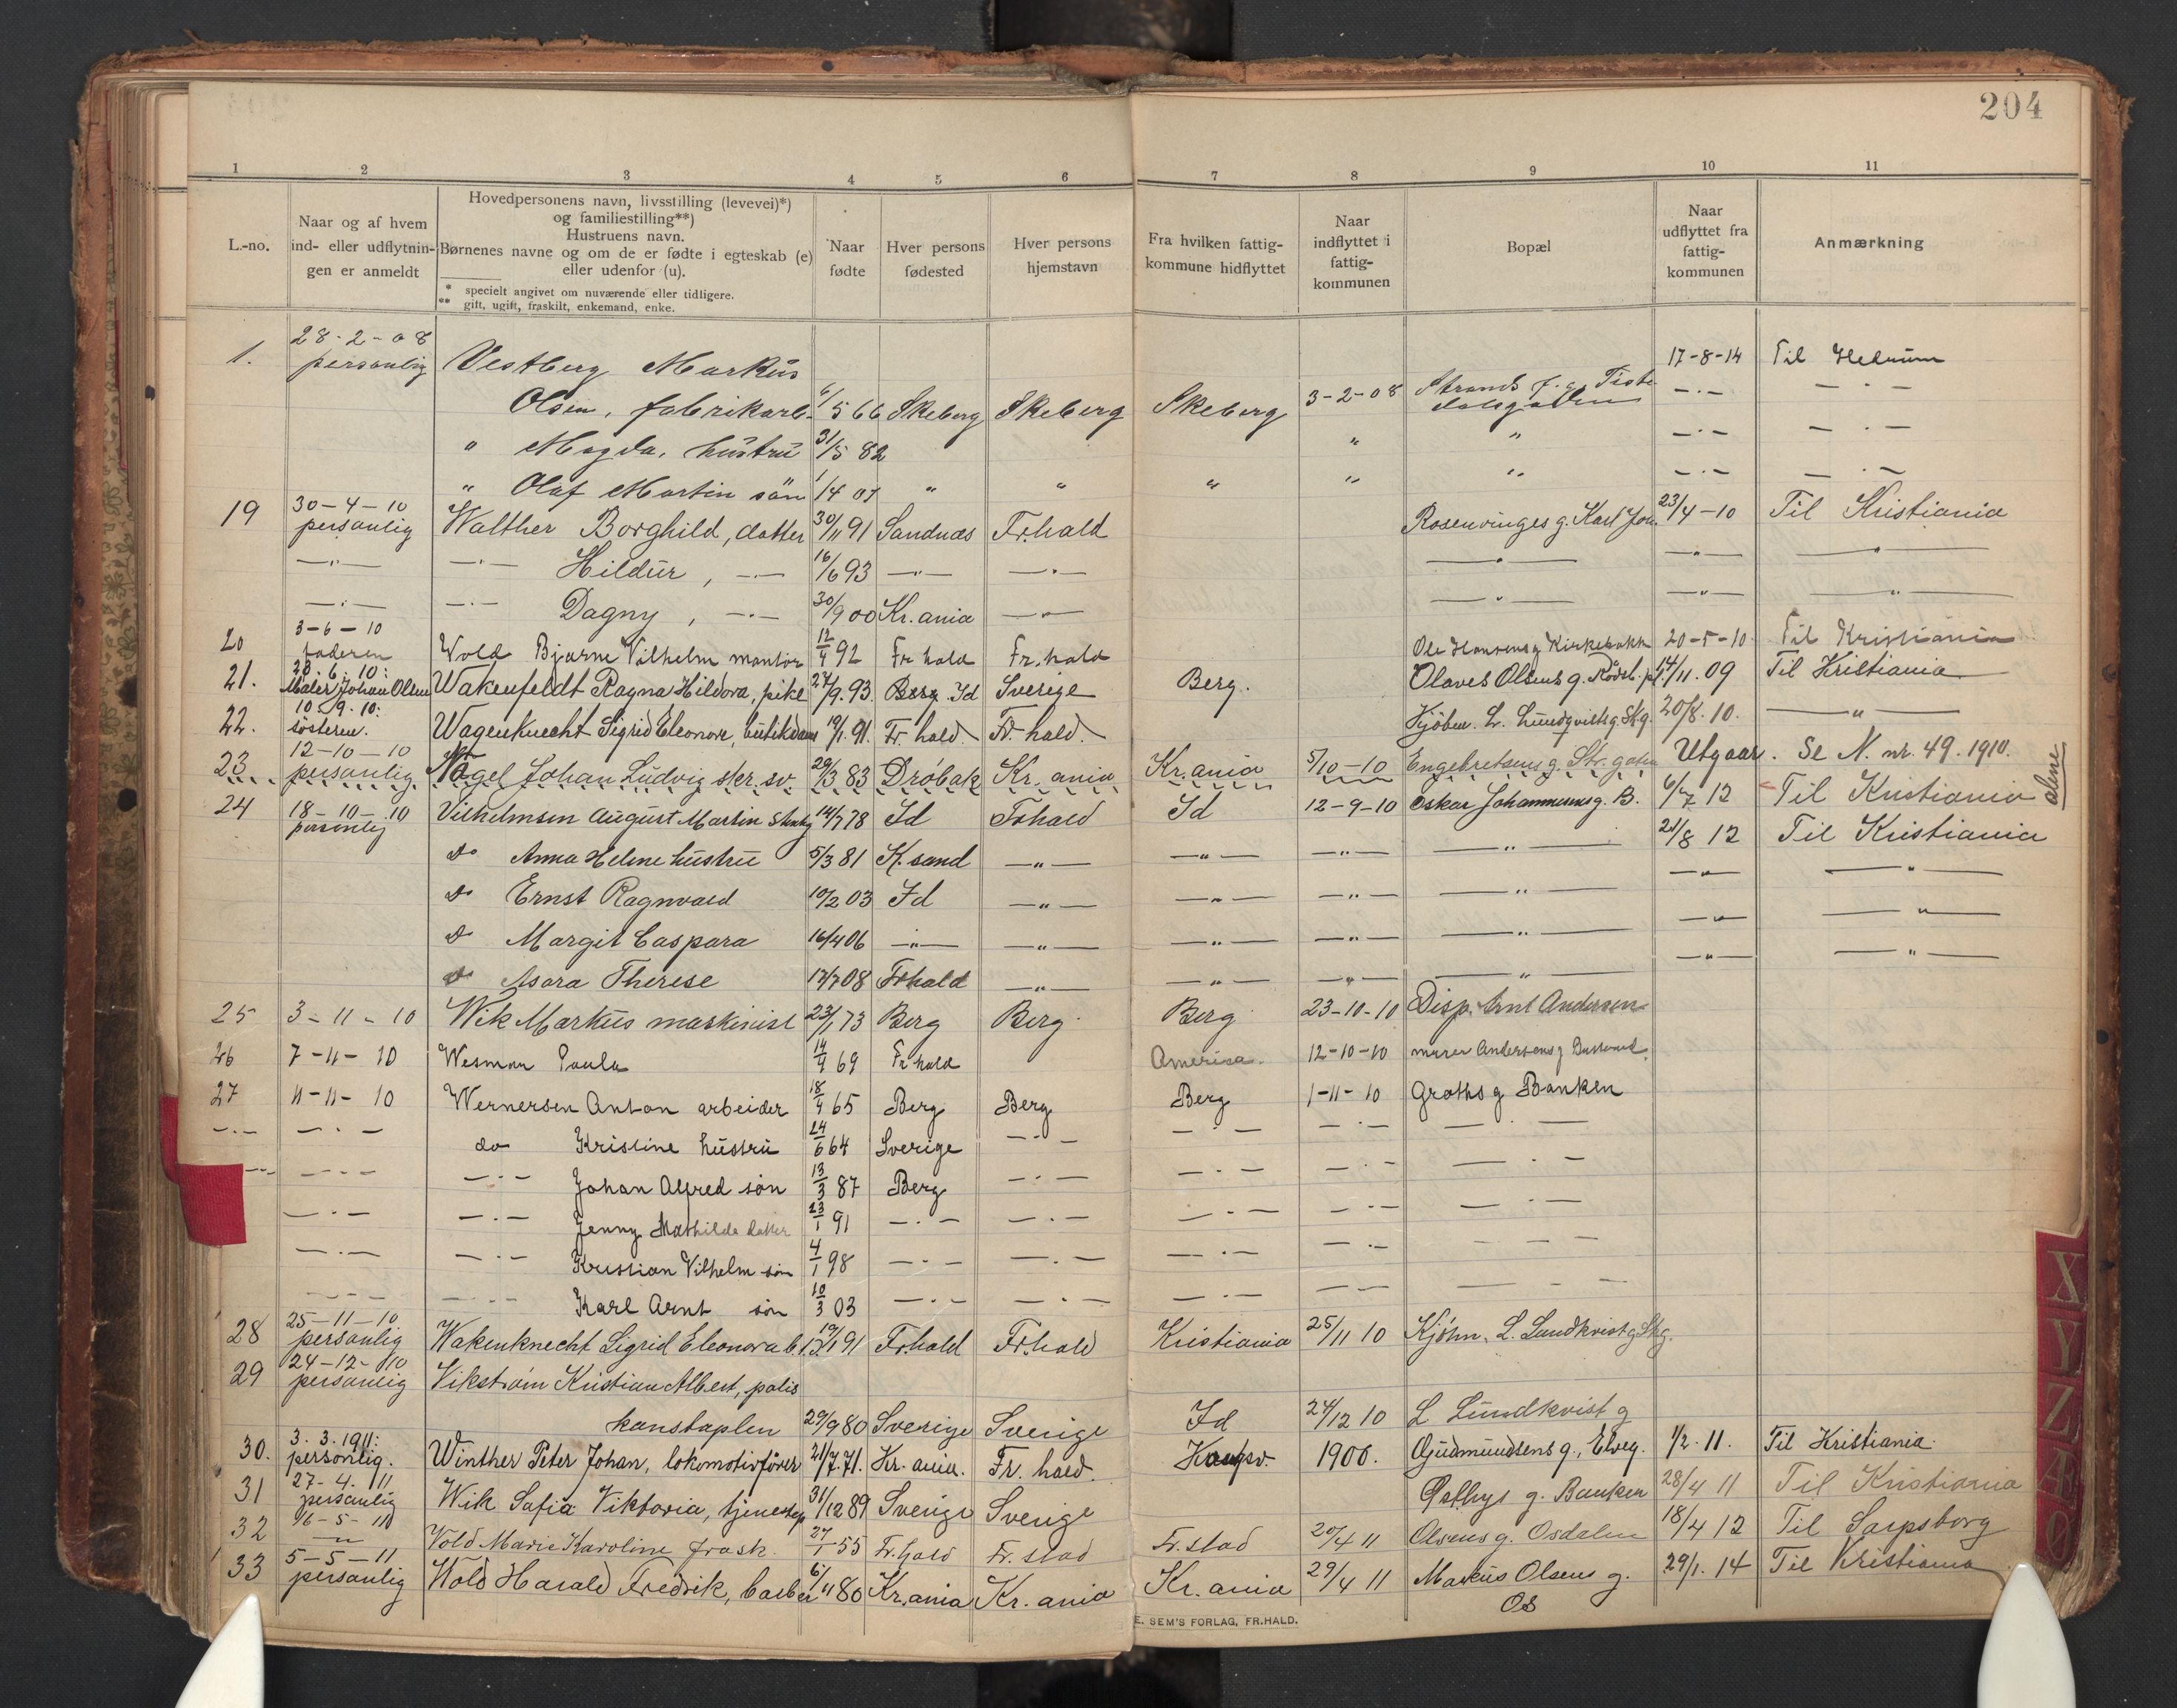 204
1 2 3 4 5 6 7 8 9 10 11
L.-no.
Naar og af hvem
ind- eller udflytnin-
gen er anmeldt
Hovedpersonens navn, livsstilling (levevei)*)
og familiestilling**)
Hustruens navn.
Børnenes navne og om de er fødte i egteskab (e)
eller udenfor (u).
* specielt angivet om nuværende eller tidligere.
** gift, ugift, fraskilt, enkemand, enke.
Naar
fødte
Hver persons
fødested
Hver persons
hjemstavn
Fra hvilken fattig-
kommune hidflyttet
Naar
indflyttet i
fattig-
kommunen
Bopæl
Naar
udflyttet fra
fattig-
kommunen
Anmærkning
28-2-08
1. personlig Vestberg Markus 17-8-14 Til
Olsen, fabrikarb. 6/5 66 Skeberg Skeberg Skeberg 3-2-08 Strands f. g. Tiste- — . —  — . —
dalsgaden
" Magda, hustru 31/5 82 " " — . — — . —
" Olaf Martin søn 1/4 07 " " " " " — . — — . —
30-4-10
19 personlig Walther Borghild, datter 30/11 91 Sandnæs Fr.hald Rosenvinges g. Karl Joh. 23/4-10 Til Kristiania
— " — — " — Hildur, — " — 16/6 93 — " — — " — — " — — " — — " —
— " — — " — Dagny, — " — 30/9 00 Kr.ania — " — — " — — " — — " —
3-6-10
20 faderen Wold Bjarne Vilhelm montør 12/4 92 Fr hald Fr. hald Ole Hansens g Kirkebakk 20-5-10 Til Kristiania
28.6.10:
21. Maler Johan Olsen Wakenfeldt Ragna Hildora, pike 27/9. 93. Berg Id Sverige Berg. Olaves Olsens g. Rødsb. 14/11. 09 Til Kristiania
10.9.10:
22. søsteren. Wagenknecht Sigrid Eleonore, butikdame 19/1. 91. Fr. hald. Fr. hald. Kjøbm. L. Lundqvists g. Stg. 20/8. 10. — " —
12-10-10
23 personlig Nagel Johan Ludvig skr. sv. 29/3 83 Drøbak Kr. ania Kr. ania 5/10-10 Engebretsens g. Str. gaten Utgaar. Se N. nr. 49. 1910.
24 18-10-10 Vilhelmsen August Martin 14/7 78 Id Frhald Id 12-9-10 Oskar Johannesens g. B. 6/7 12 Til Kristiania alene
personlig
do Anna Helene hustru 5/3 81 K. sand — " — — " — — " — — " — 21/8 12 Til Kristiania
do Ernst Ragnvald 10/2 03 Id — " — — " — — " — — " — — " — — " —
do Margit Caspara 16/4 06 — " — — " — — " — — " — — " — — " — — " —
do Asora Therese 12/7 08 Frhald — " — — " — — " — — " — — " — — " —
25 3-11-10 Wik Markus maskinist 23/1 73 Berg Berg Berg 23-10-10 Disp. Arnt Andersen
26 7-11-10 Wesman Paula 14/4 69 Fr hald America 12-10-10 murer Andersens g
27 11-11-10 Wernersen Anton arbeider 18/4 65 Berg Berg Berg 1-11-10 Groths g Banken
— . — — . — do Kristine hustru 24/6 64 Sverige — . — — . — — . — — . —
— . — — . — — . — Johan Alfred søn 13/3 87 Berg — . — — . — — . — — . —
— . — — . — Jenny Mathilde datter 23/1 91 — . — — . — — . — — . — — . —
— . — — . — Kristian Vilhelm søn 4/1 98 — . — — . — — . — — . — — . —
— . — — . — Karl Arnt søn 10/3 03 — . — — . — — . — — . — — . —
25-11-10
28 personlig Wakenknecht Sigrid Eleonora 19/1 91 Fr.hald Fr.hald Kristiania 25/11 10 Kjøbm. L. Lundkvist g Stg.
24-12-10
29 personlig Vikstrøm Kristian Albert, polis
konstaplen 29/9 80 Sverige Sverige Id 24/12 10 L Lundkvist g
3.3.1911:
30. personlig. Winther Peter Johan, lokomotivfører 21/7. 71. Kr. ania. Fr. hald. Kongsv. 1906. Gudmundsens g., Elveg. 1/2. 11. Til Kristiania.
27-4-11
31 personlig Wik Sofia Viktoria, tjenestep 31/12 89 Sverige Sverige Østbys g. Banken 28/4 11 Til Kristiania
16-5-11
32 — " — Vold Marie Karoline frask. 27/1 55 Fr. hald Fr. stad Fr. stad 20/4 11 Olsens g. Osdalen 18/4 12 Til Sarpsborg
5-5-11
33 personlig Wold Harald Fredrik, barber 6/11 80 Kr.ania Kr. ania Kr. ania 29/4 11 Markus Olsens g. 29/1. 14 Til Kristiania
Os
E. SEM'S FORLAG, FR.HALD.
X Y Z Æ Ø